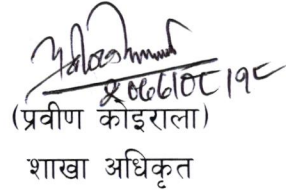 २०७७।०८।१८
(प्रवीण कोइराला)
शाखा अधिकृत